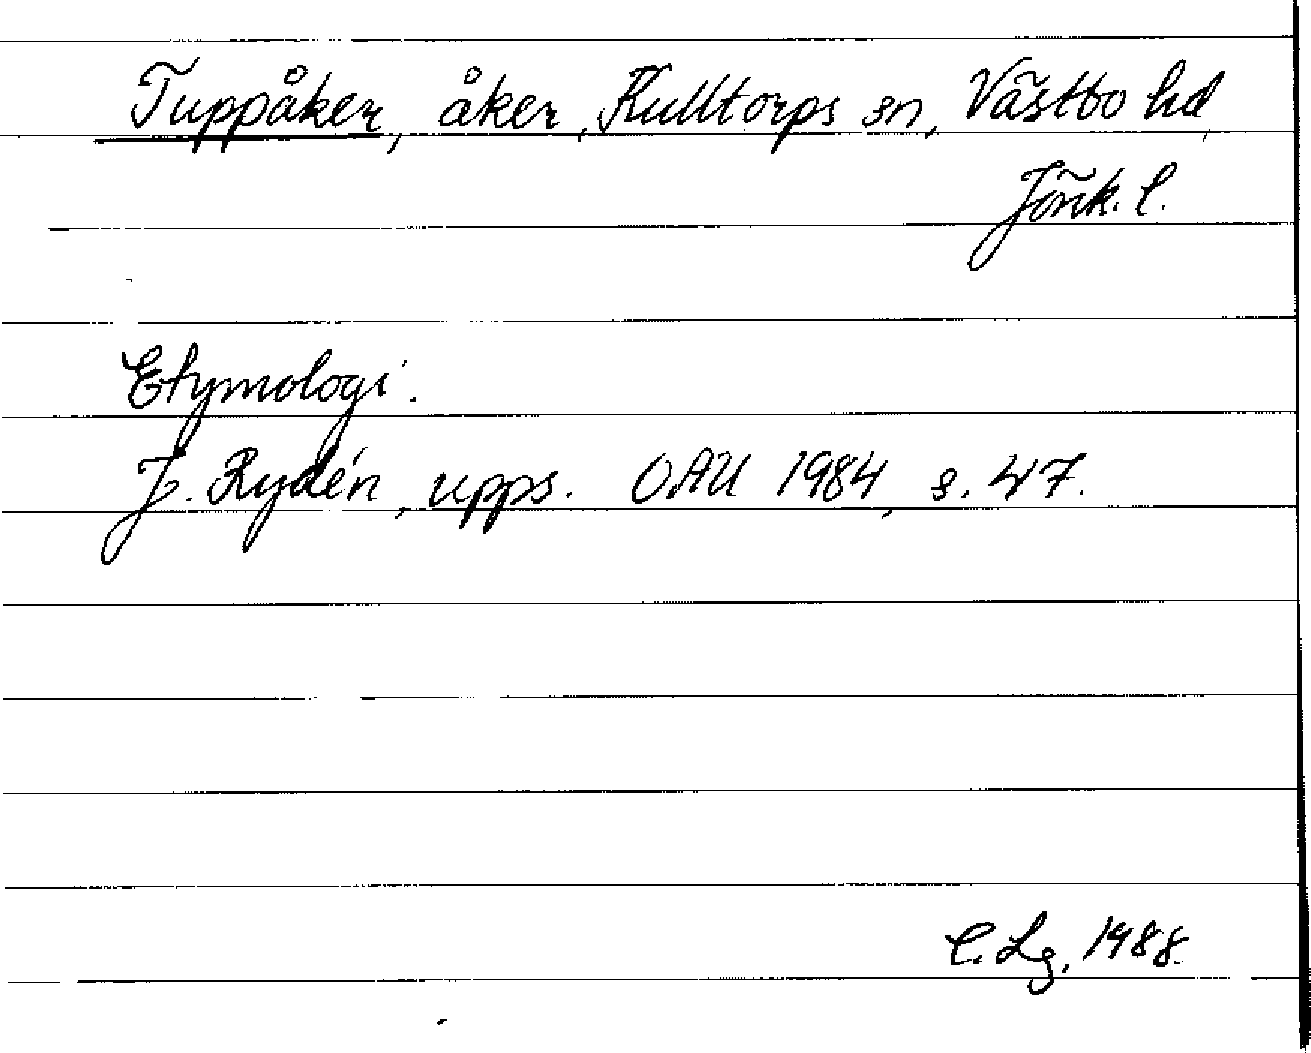 Tuppåker, åker, Kulltorps sn, Västbo hd,
Jönk. l.
Etymologi.
J. Rydén, upps. OAU 1984, s. 47.
C. Lg, 1988.